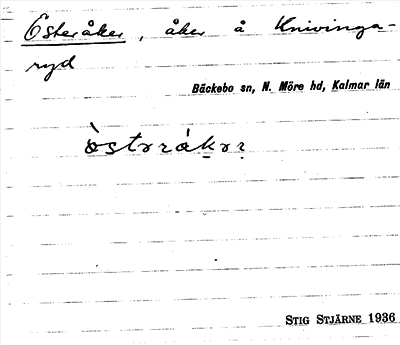 Österåker, åker å Knivinga-
ryd
Bäckebo sn, N. Möre hd, Kalmar län
STIG STJÄRNE 1936